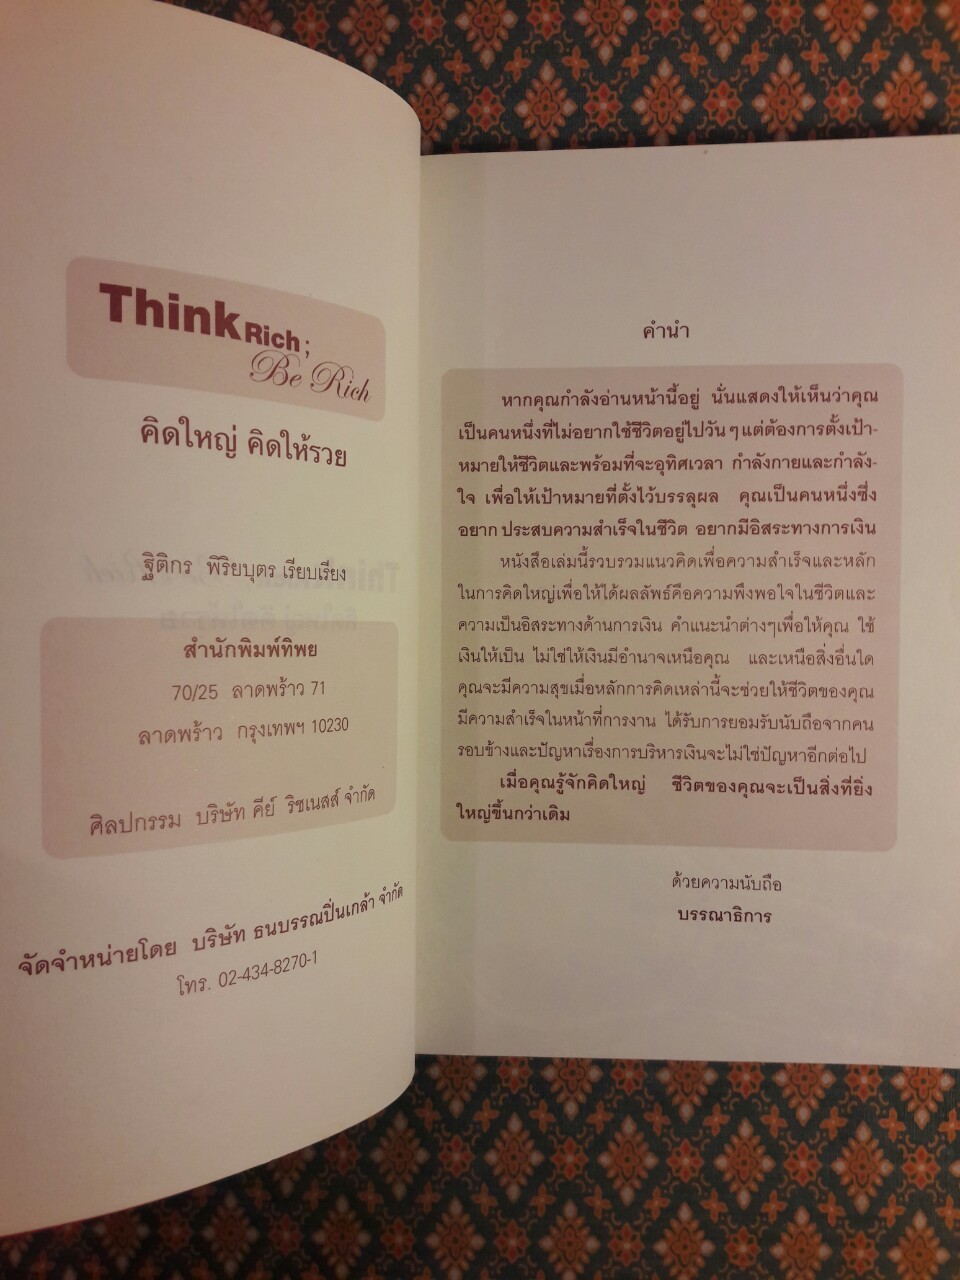 Think Rich ;
Be Rich
คิดใหญ่ คิดให้รวย
ฐิติกร พิริยบุตร เรียบเรียง
สำนักพิมพ์ทิพย
70/25 ลาดพร้าว 71
ลาดพร้าว กรุงเทพฯ 10230
ศิลปกรรม บริษัท คีย์ ริชเนสส์ จำกัด
จัดจำหน่ายโดย บริษัท ธนบรรณปิ่นเกล้า จำกัด
โทร. 02-434-8270-1
คำนำ
หากคุณกำลังอ่านหน้านี้อยู่ นั่นแสดงให้เห็นว่าคุณ
เป็นคนหนึ่งที่ไม่อยากใช้ชีวิตอยู่ไปวัน ๆ แต่ต้องการตั้งเป้า-
หมายให้ชีวิตและพร้อมที่จะอุทิศเวลา กำลังกายและกำลัง-
ใจ เพื่อให้เป้าหมายที่ตั้งไว้บรรลุผล คุณเป็นคนหนึ่งซึ่ง
อยาก ประสบความสำเร็จในชีวิต อยากมีอิสระทางการเงิน
หนังสือเล่มนี้รวบรวมแนวคิดเพื่อความสำเร็จและหลัก
ในการคิดใหญ่เพื่อให้ได้ผลลัพธ์คือความพึงพอใจในชีวิตและ
ความเป็นอิสระทางด้านการเงิน คำแนะนำต่างๆเพื่อให้คุณ ใช้
เงินให้เป็น ไม่ใช่ให้เงินมีอำนาจเหนือคุณ และเหนือสิ่งอื่นใด
คุณจะมีความสุขเมื่อหลักการคิดเหล่านี้จะช่วยให้ชีวิตของคุณ
มีความสำเร็จในหน้าที่การงาน ได้รับการยอมรับนับถือจากคน
รอบข้างและปัญหาเรื่องการบริหารเงินจะไม่ใช่ปัญหาอีกต่อไป
เมื่อคุณรู้จักคิดใหญ่ ชีวิตของคุณจะเป็นสิ่งที่ยิ่ง
ใหญ่ขึ้นกว่าเดิม
ด้วยความนับถือ
บรรณาธิการ